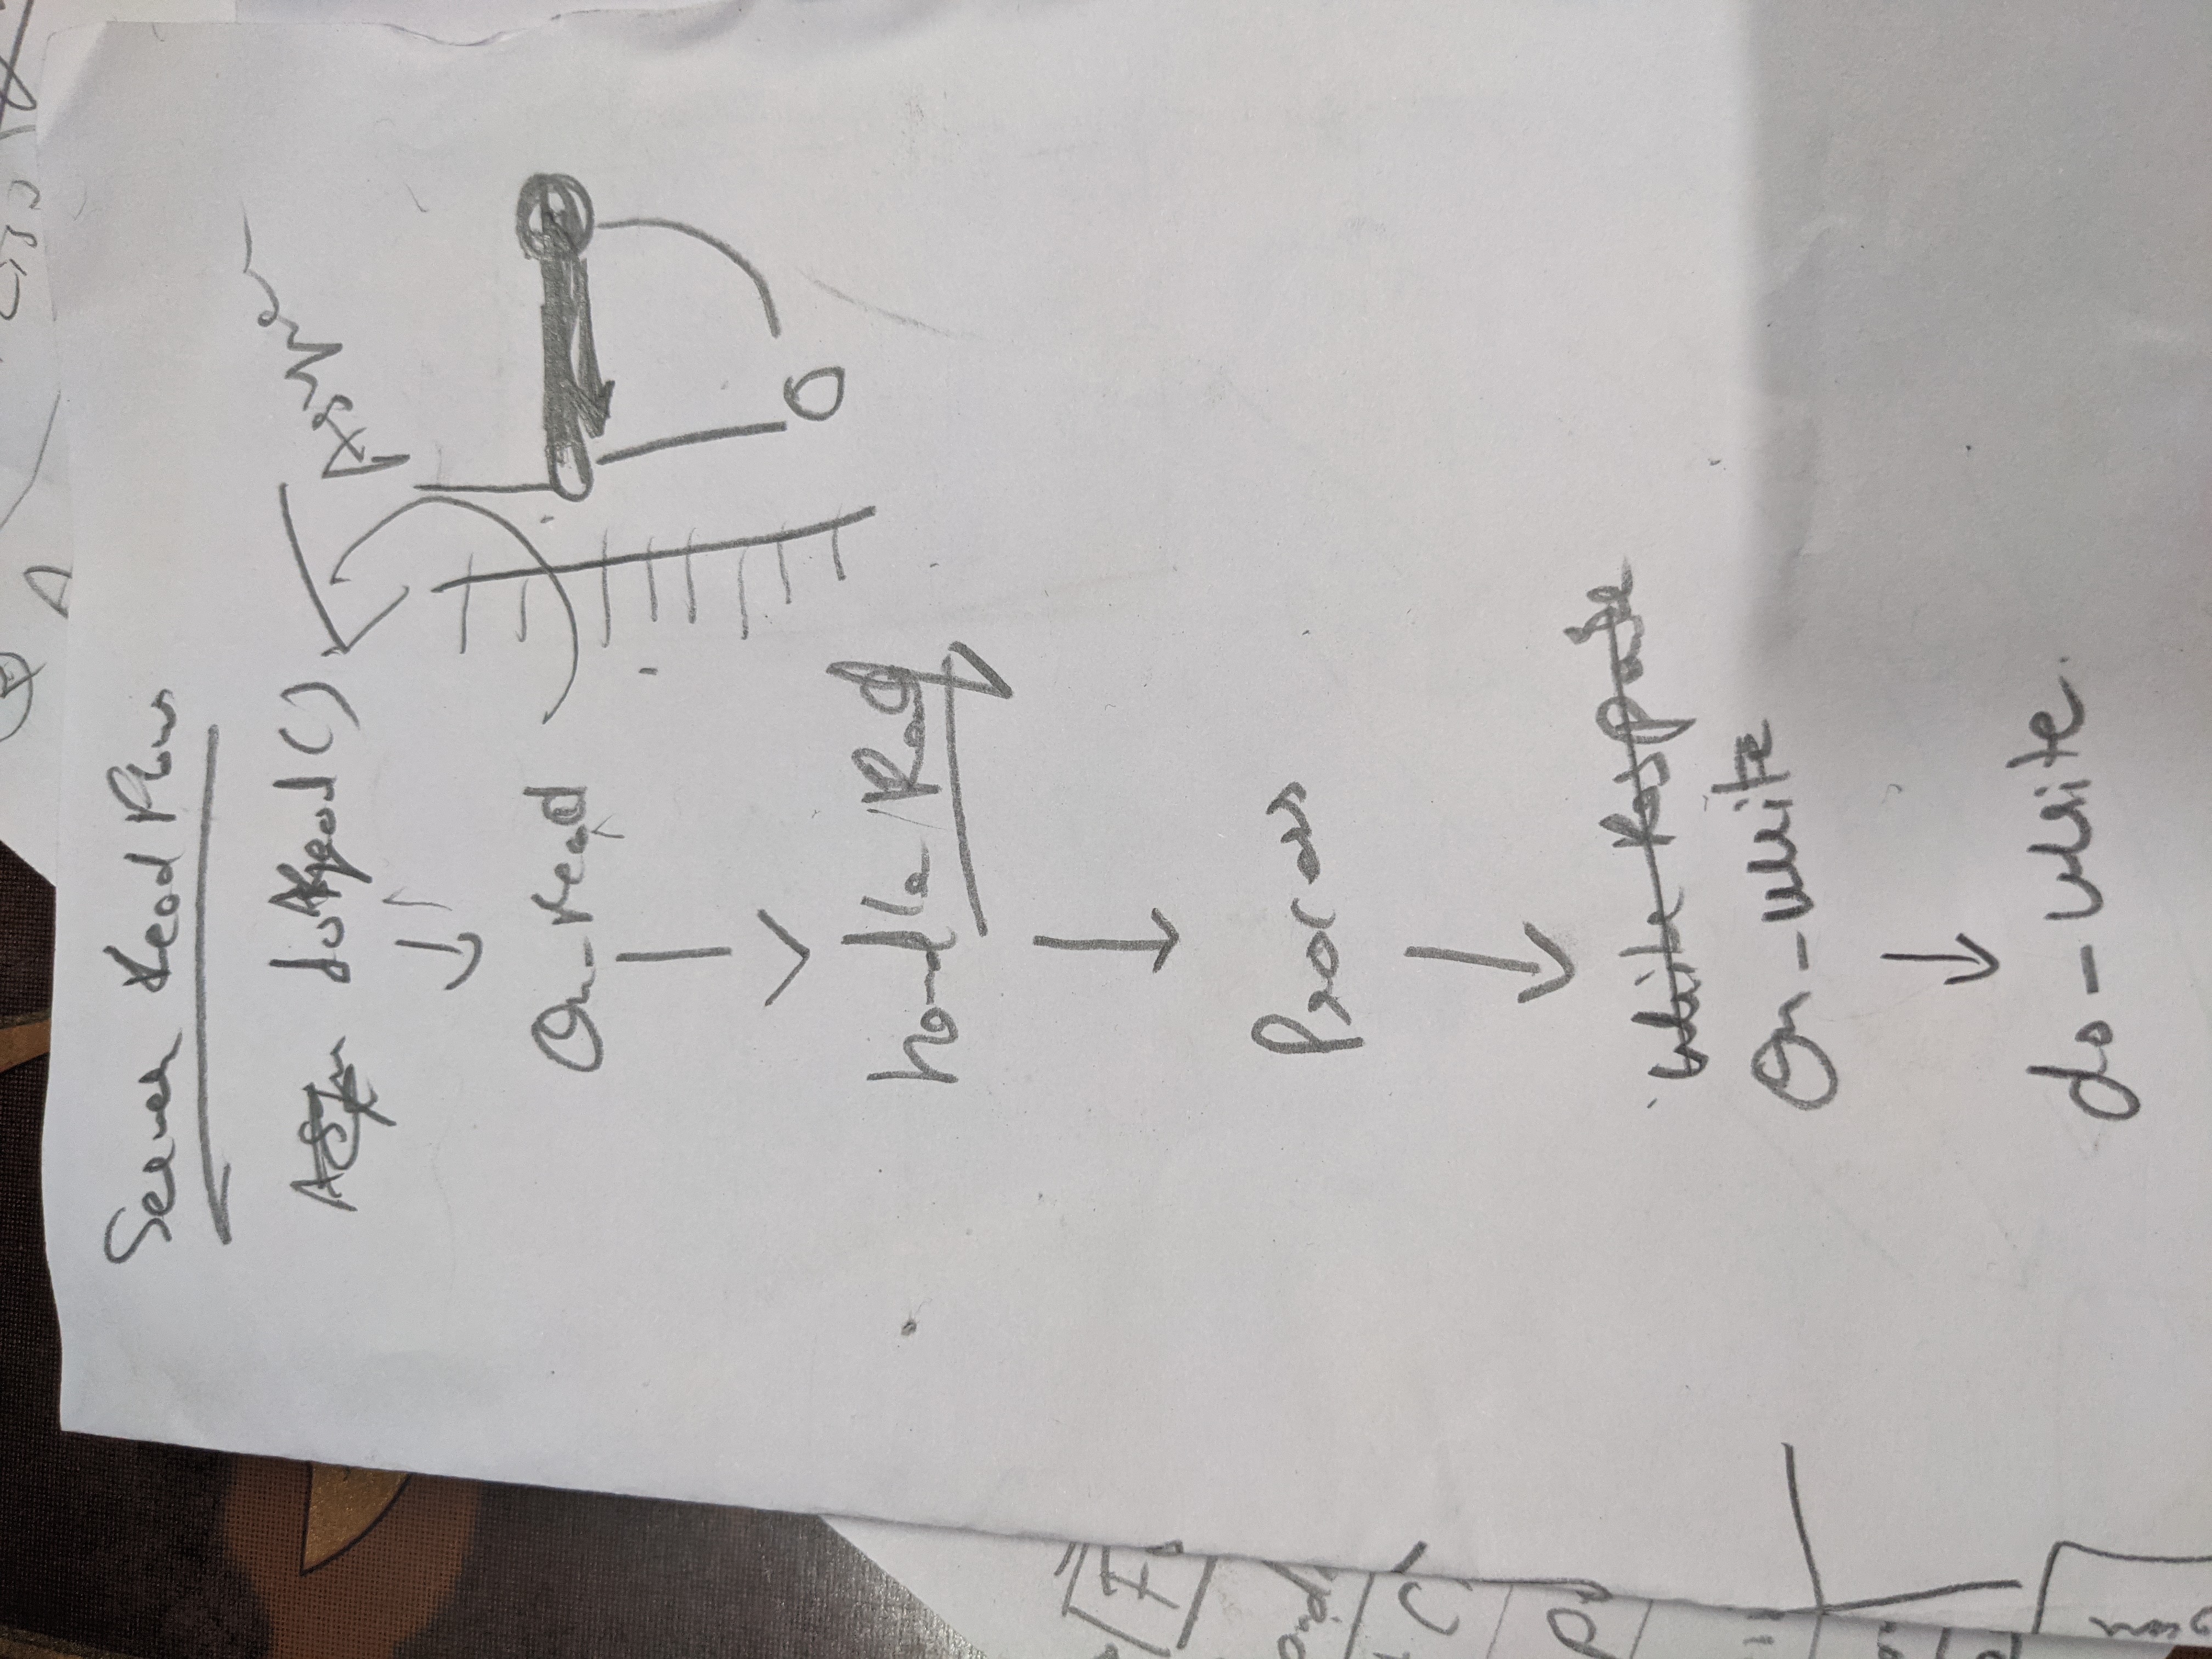 Server Read Flow
Asyn doRead()
Async
On-read
handle Req
Process
Write Response
On-write
do-write.